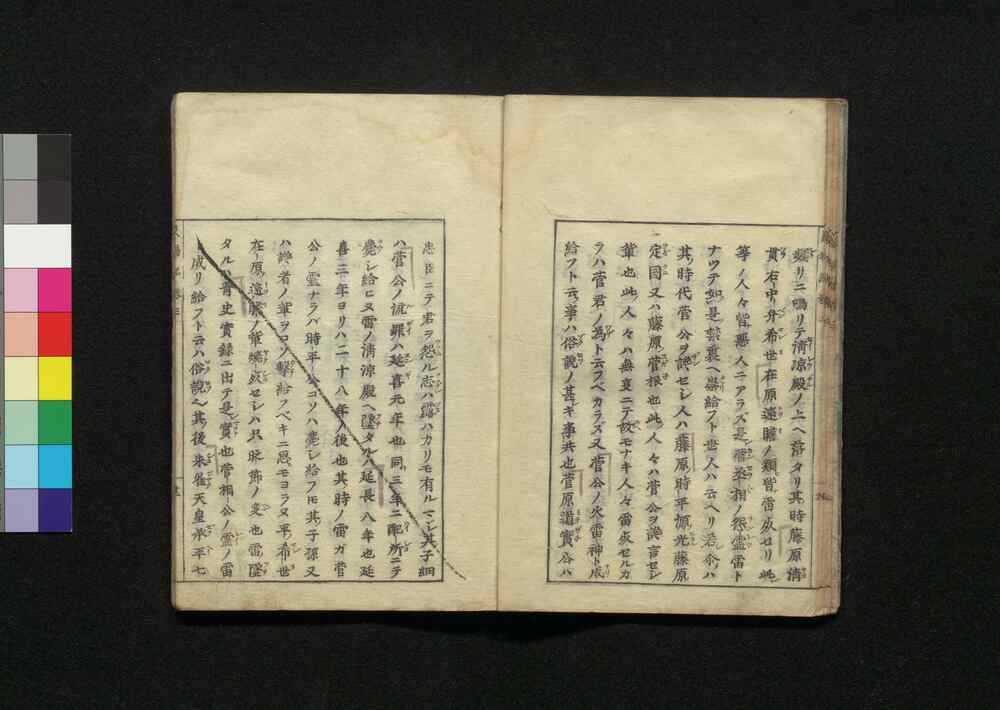 リニ鳴リテ清涼殿ノ上ヘ落タリ其時藤原清
貫右中弁希世在原遠瞻ノ類皆雷火セリ此
等ノ人々皆悪人ニアラズ是菅丞相ノ怨霊雷ト
ナツテ如是禁裏ヘ給フト世ノ人ハ云ヘリ若尓ハ
其時代菅公ヲ讒セシ人ハ藤原時平源光藤原
定国又ハ藤原菅根也此人々ハ菅公ヲ讒言セシ
輩也此人々ハ無事ニテ故モナキ人々雷火セルカ
ラハ菅君ノ為ト云フベカラズ又菅公ノ火雷神ト成
給フト云事ハ俗説ノ甚キ事共也菅原道實公ハ
忠臣ニテ君ヲ怨ル志ハ露ハカリモ有ルマシ其子細
ハ菅公ノ流罪ハ延喜元年也同三年ニ配所ニテ
薨シ給ヒヌ雷ノ清涼殿ヘ墜タルハ延長八年也延
喜三年ヨリハ二十八年ノ後也其時ノ雷ガ菅
公ノ霊ナラバ時平公コソハ薨シ給フトモ其子孫又
ハ讒者ノ輩ヲコソ撃給フベキニ思モヨラヌ平希世
在原遠瞻ノ輩焼火セシハ只時節ノ変也雷墜
タルハ青史實録ニ出テ是實也菅相公ノ霊ノ雷
ト成リ給フト云ハ俗説也其後朱雀天皇承平七